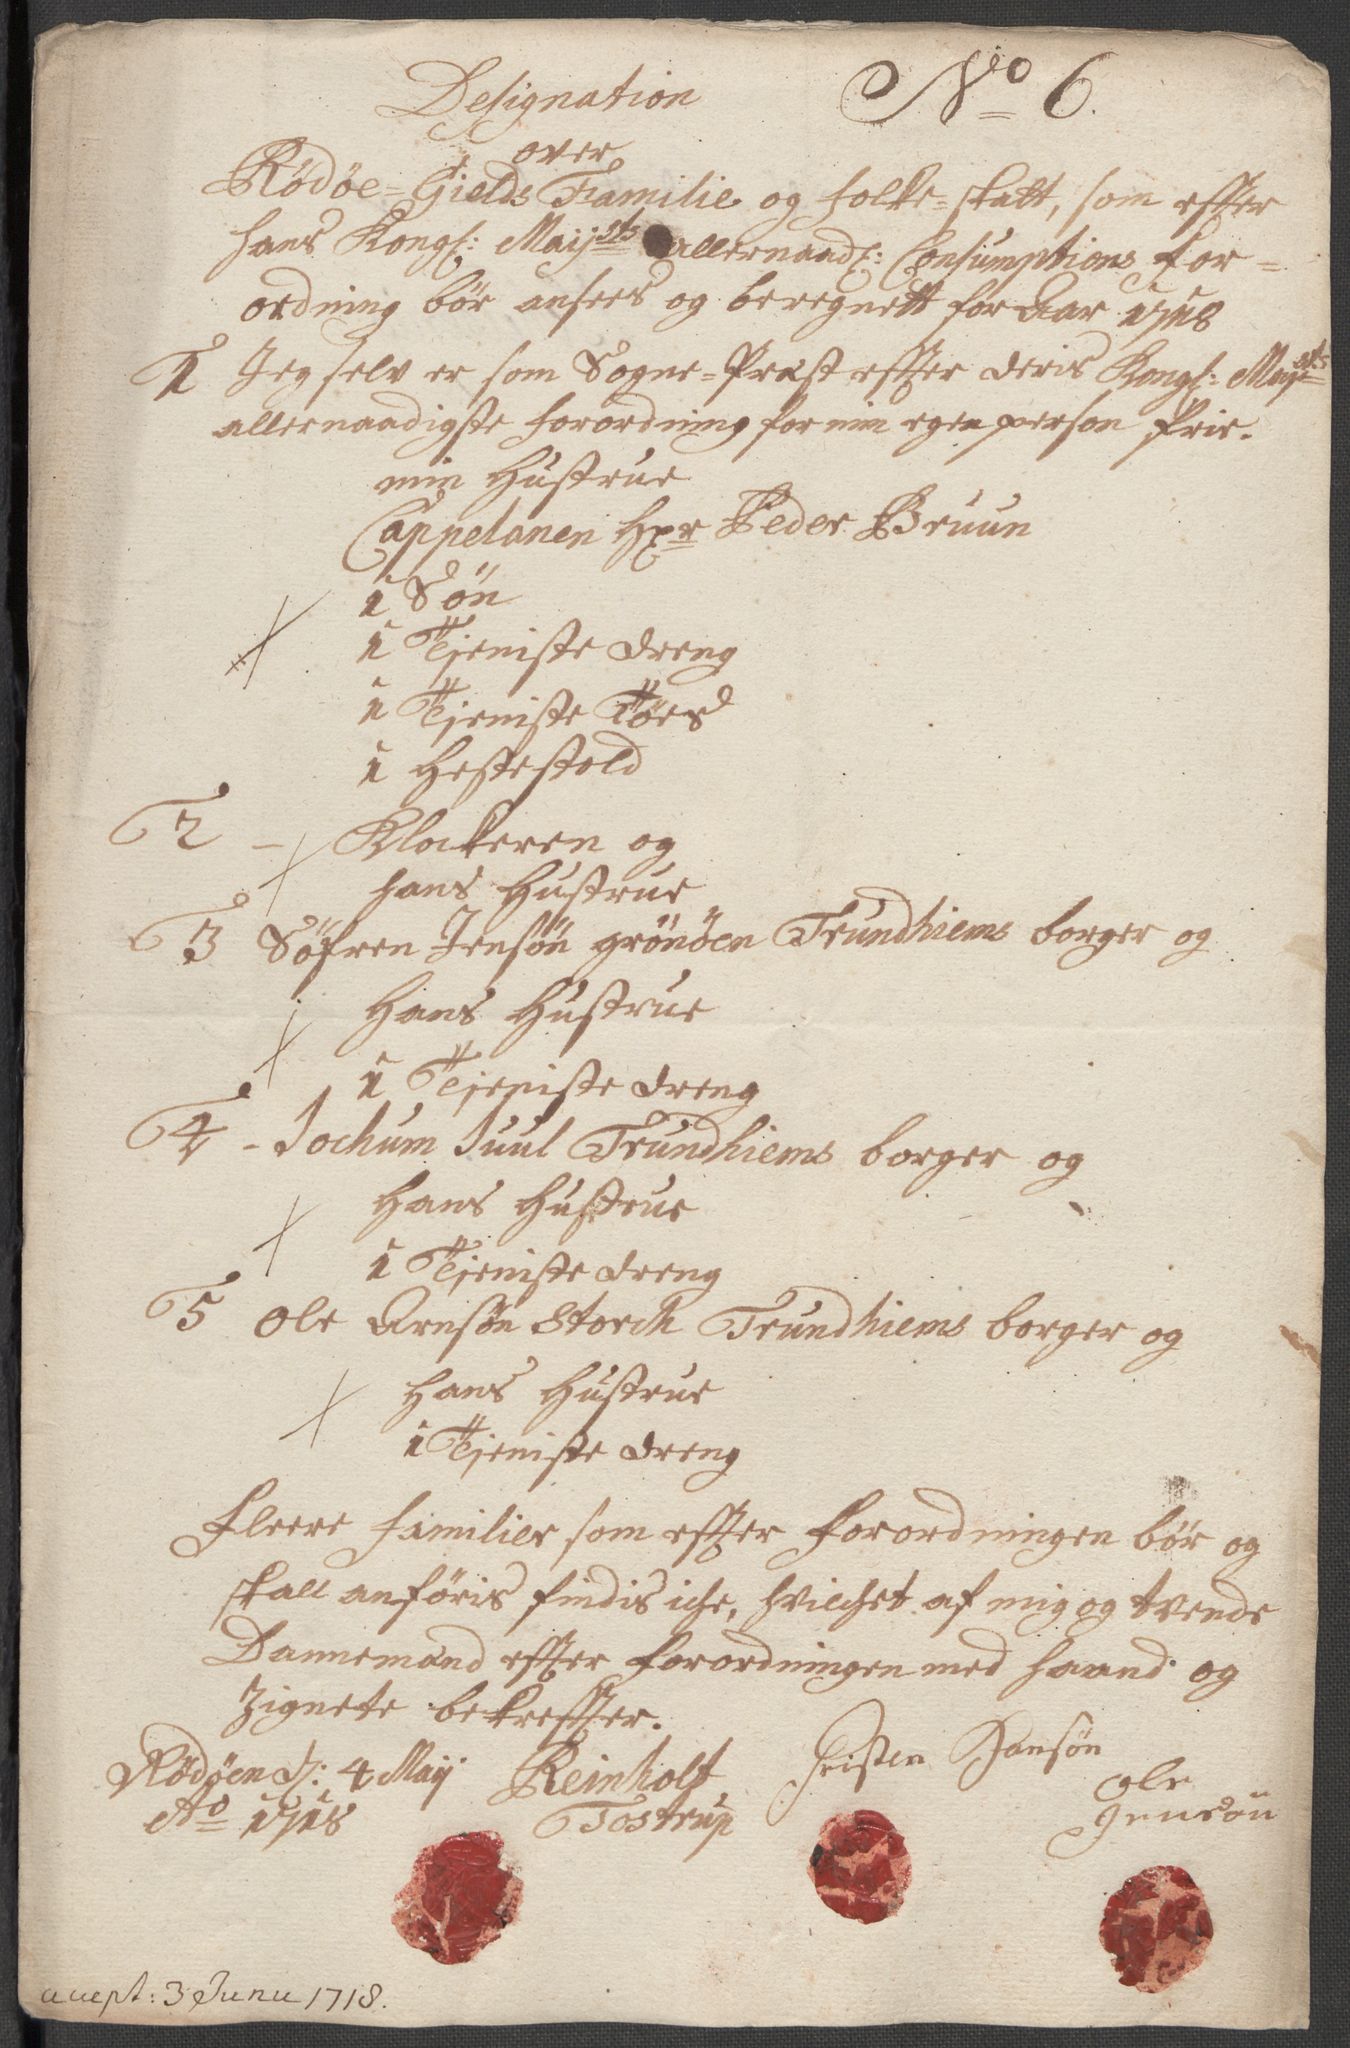 Designation
No 6.
over
Rödöe=Gields Familie og folke=skatt, som effter
hans Kongl: Maijsts allernaadl: Consumptions For=
ordning bör ansees og beregnett for Aar 1718
1 Jeg selv er som Sogne=Præst effter deris Kongl: Maijsts
allernaadigste forordning for min egen person frie.
min Hustrue
Cappelanen Hr Peder Bruun
1 Sön
1 Tjeniste dreng
1 Tjeniste Töes
1 Hestestold
2 - Klockeren og
hans Hustrue
3 Söfren Jensön grönöen Trundhiems borger og
Hans Hustrue
1 Tjeniste dreng
4 - Jochum Juul Trundhiems borger og
Hans Hustrue
1 Tjeniste dreng
5 Ole Arnsön Storch Trundhiems borger og
Hans Hustrue
1 Tjeniste dreng
Fleere familier som effter forordningen bör og
skall anföris findis iche, hvilchet af mig og tvende
Dannemænd effter forordningen med haand og
Zignete bekreffter.
Rödöen d: 4 Maij
Ao 1718
Reinholt
Tostrup
Christen Hansön
Ole
Jensön
accept: 3 Junii 1718.